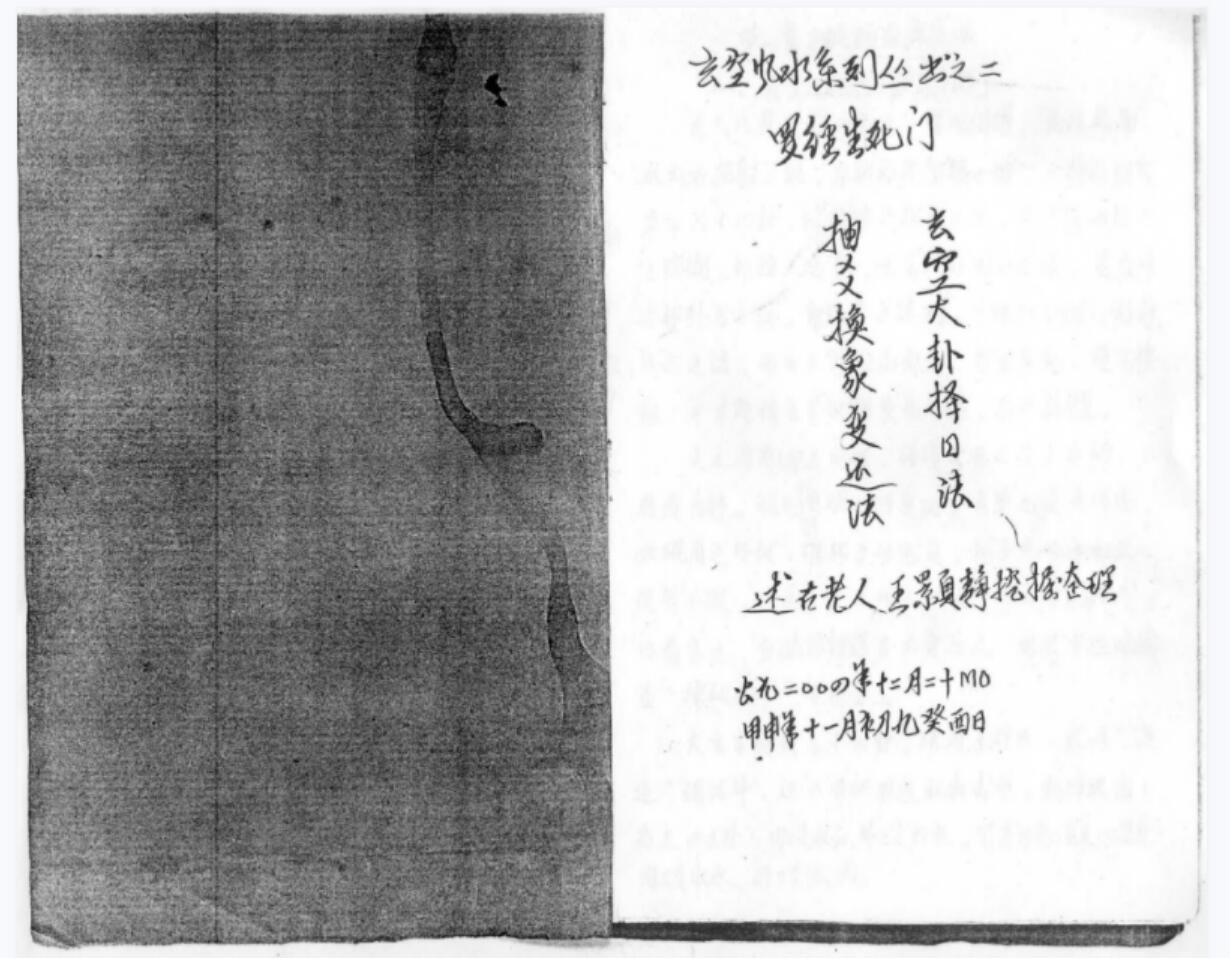 玄空风水系列丛书之二
罗经生死门
玄空大卦择日法
抽爻换象变运法
述古老人王景颖静挖掘整理
公元二〇〇四年十二月二十四日
甲申年十一月初九癸酉日